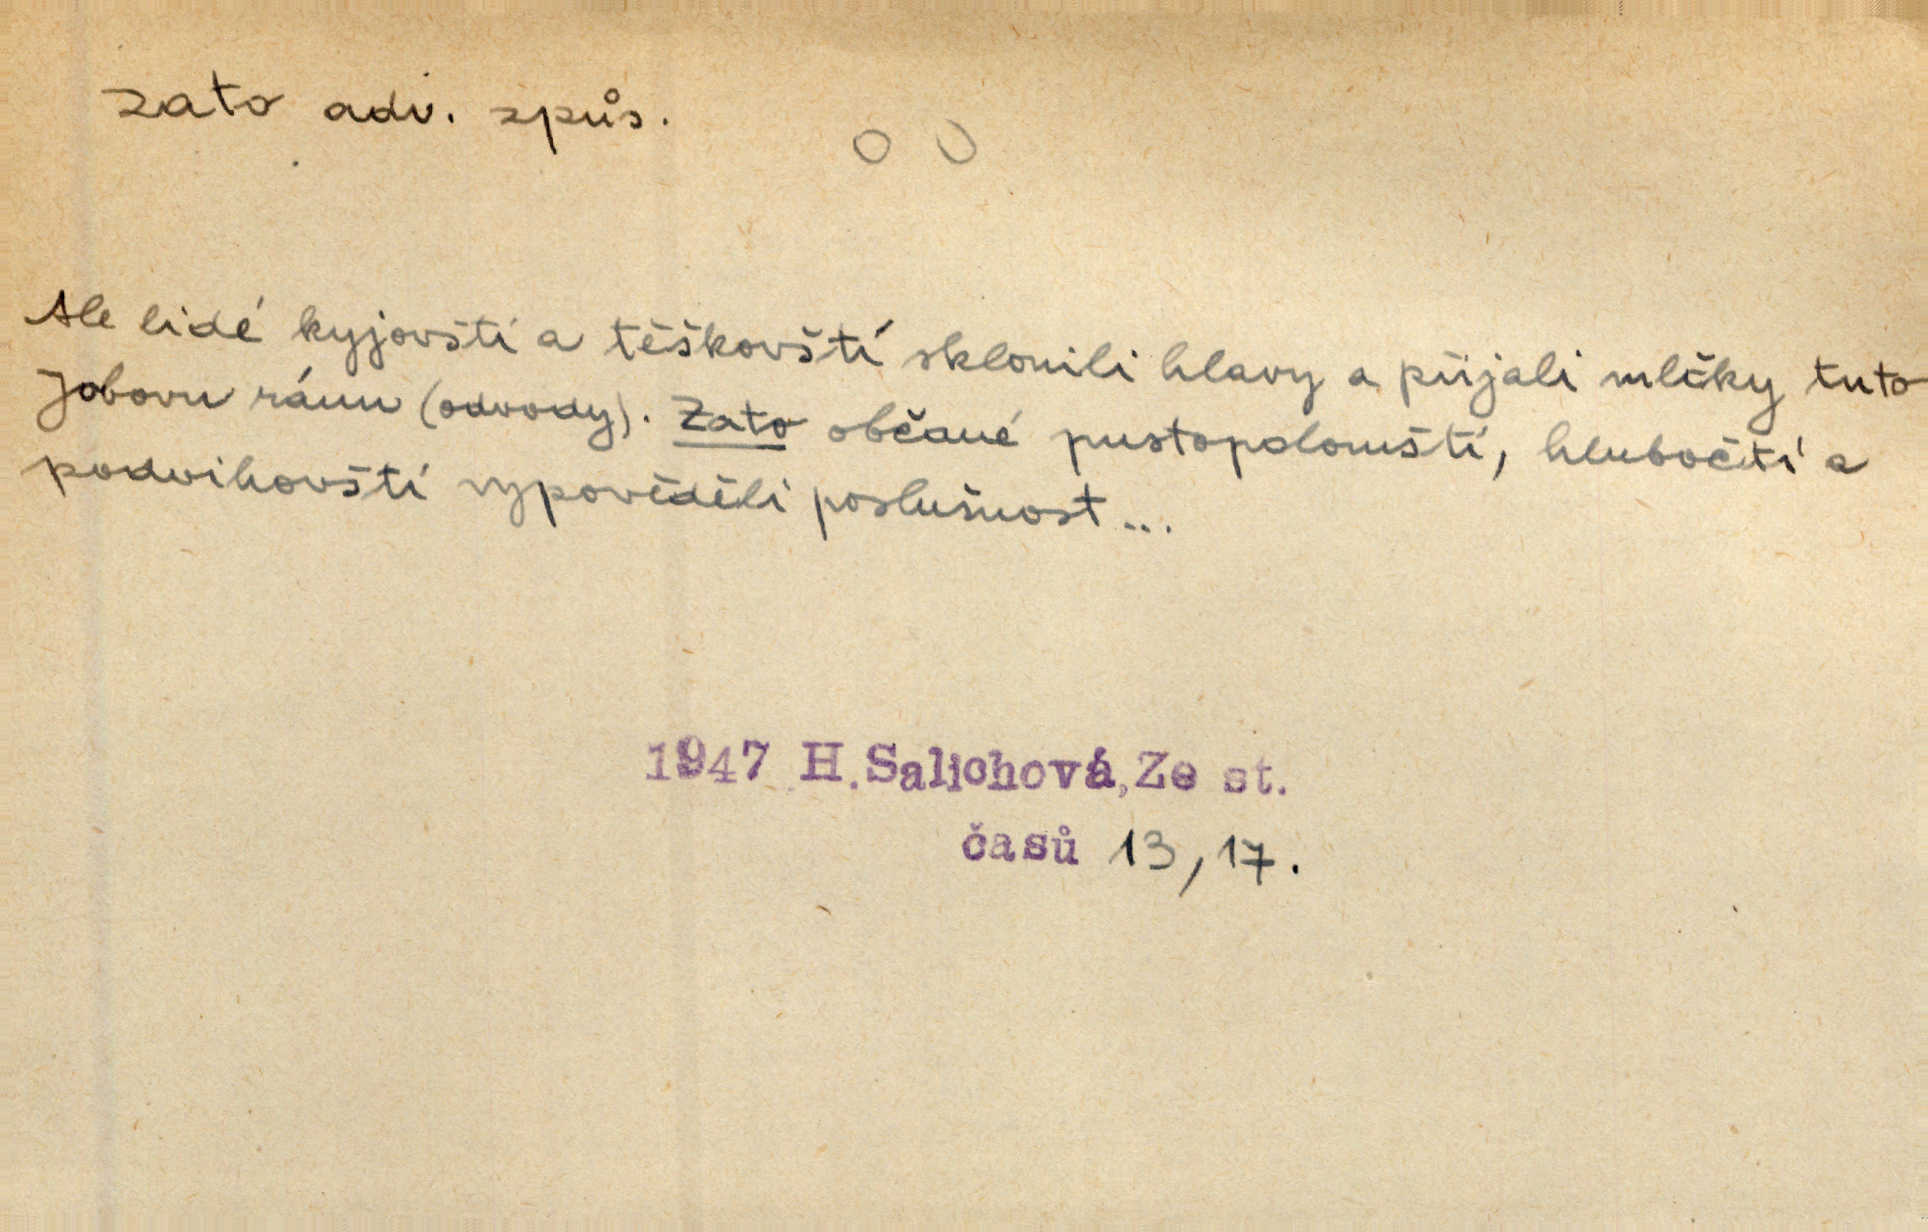 zato adv. způs.
Ale lidé kyjovští a těškovští sklonili hlavy a přijali mlčky tuto
Jobovu ránu (odvody). Zato občané pustopolomští, hlubočtí a
podvihovští vypověděli poslušnost...
1947 H.Salichová,Ze st.
časů 13, 17.